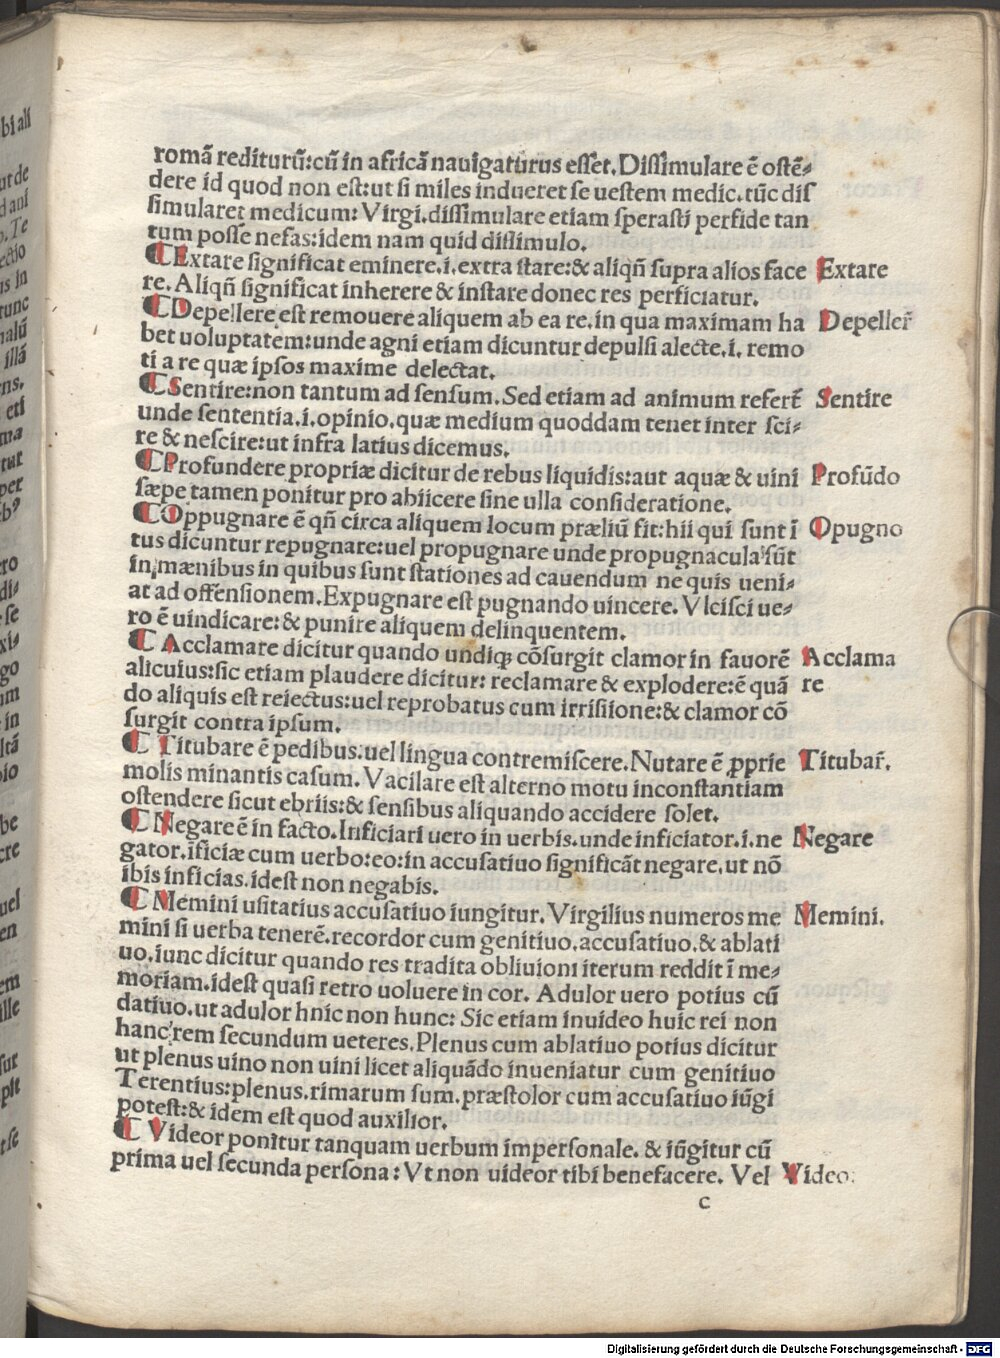 romā rediturū:cū in africā nauigaturus esset. Dissimulare ē ostē⸗
dere id quod non est:ut si miles indueret se uestem medic. tūc diſ
simularet medicum: Virgi. dissimulare etiam sperasti perfide tan
tum posse nefas:idem nam quid dissimulo.
¶ Extare significat eminere.i.extra stare:& aliqñ supra alios face Extare
re. Aliqñ significat inherere & instare donec res perficiatur.
¶ Depellere est remouere aliquem ab ea re.in qua maximam ha Depeller̄
bet uoluptatem:unde agni etiam dicuntur depulsi a lecte.i. remo
ti a re quæ ipsos maxime delectat.
¶ Sentire:non tantum ad sensum. Sed etiam ad animum refert̄ Sentire
unde sententia.i.opinio.quæ medium quoddam tenet inter sci⸗
re & nescire:ut infra latius dicemus.
¶ Profundere propriæ dicitur de rebus liquidis:aut aquæ & uini Profūdo
sæpe tamen ponitur pro abiicere sine ulla consideratione.
¶ Oppugnare ē qñ circa aliquem locum præliū fit:hii qui sunt ī Opugno
tus dicuntur repugnare:uel propugnare unde propugnacula sūt
in mænibus in quibus sunt stationes ad cauendum ne quis ueni⸗
at ad offensionem. Expugnare est pugnando uincere. Vlcisci ue⸗
ro ē uindicare:& punire aliquem delinquentem.
¶ Acclamare dicitur quando undiqꝫ cōsurgit clamor in fauorē Acclama
alicuius:sic etiam plaudere dicitur: reclamare & explodere:ē quā re
do aliquis est reiectus:uel reprobatus cum irrisiione:& clamor cō
surgit contra ipsum.
¶ Titubare ē pedibus.uel lingua contremiscere. Nutare ē ꝓprie Titubar̄.
molis minantis casum. Vacilare est alterno motu inconstantiam
ostendere sicut ebriis:& sensibus aliquando accidere solet.
¶ Negare ē in facto. Inficiari uero in uerbis.unde inficiator.i.ne Negare
gator.īficiæ cum uerbo:eo:in accusatiuo significāt negare.ut nō
ibis inficias.idest non negabis.
¶ Memini usitatius accusatiuo iungitur. Virgilius numeros me Memini.
mini si uerba tenerē.recordor cum genitiuo.accusatiuo.& ablati
uo.iunc dicitur quando res tradita obliuioni iterum reddit ī me⸗
moriam.idest quasi retro uoluere in cor. Adulor uero potius cū
datiuo.ut adulor hnic non hunc: Sic etiam inuideo huic rei non
hanc rem secundum ueteres. Plenus cum ablatiuo potius dicitur
ut plenus uino non uini licet aliquādo inueniatur cum genitiuo
Terentius:plenus.rimarum sum.præstolor cum accusatiuo iūgi
potest:& idem est quod auxilior.
¶ Videor ponitur tanquam uerbum impersonale. & iūgitur cū
prima uel secunda persona: Vt non uideor tibi benefacere. Vel Video.
c
Digitalisierung gefördert durch die Deutsche Forschungsgemeinschaft - DFG